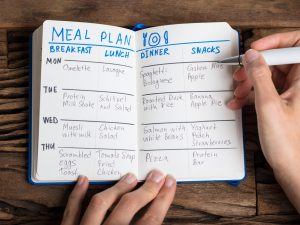 MEAL PLAN
BREAKFAST LUNCH DINNER SNACKS
MON
Omelette Lasagne Spaghetti Bolognese Cashew Nuts Apple
TUE
Protein Milk Shake Schnitzel and Salad Roasted Duck with Rice Banana Apple Pie
WED
Muesli with milk Chicken Salad Salmon with white Beans Yoghurt with Strawberries
THU
Scrambled eggs Toast Tomato Soup Fried Chicken Pizza Protein Bar